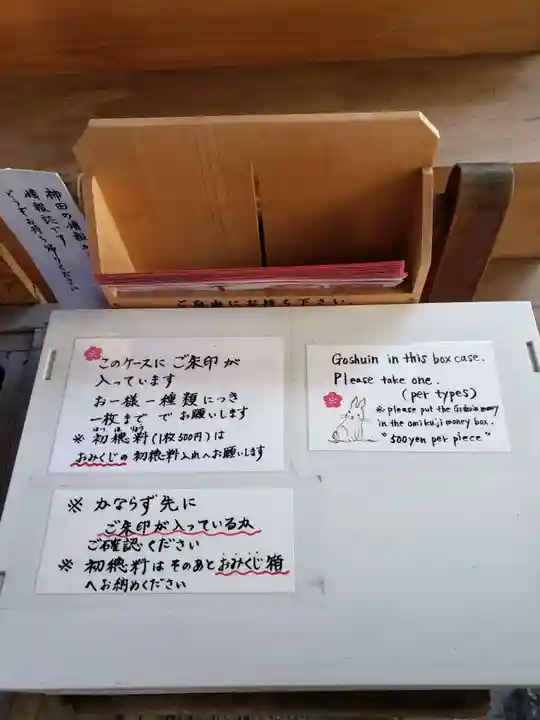 神田の情報
情報誌です
どうぞお持ち帰りください
ご自由にお持ち下さい。
このケースに ご朱印が
入っています
お一様一種類につき
一枚まで でお願いします
はつ ほ りょう
※ 初穂料(1枚500円)は
おみくじの 初穂料入れへお願いします
Goshuin in this box case.
Please take one.
(per types)
※ please put the Goshuin money
in the omikuji money box.
"500yen per piece"
※ かならず先に
ご朱印が入っているか
ご確認ください
※ 初穂料はそのあとおみくじ箱
へお納めください